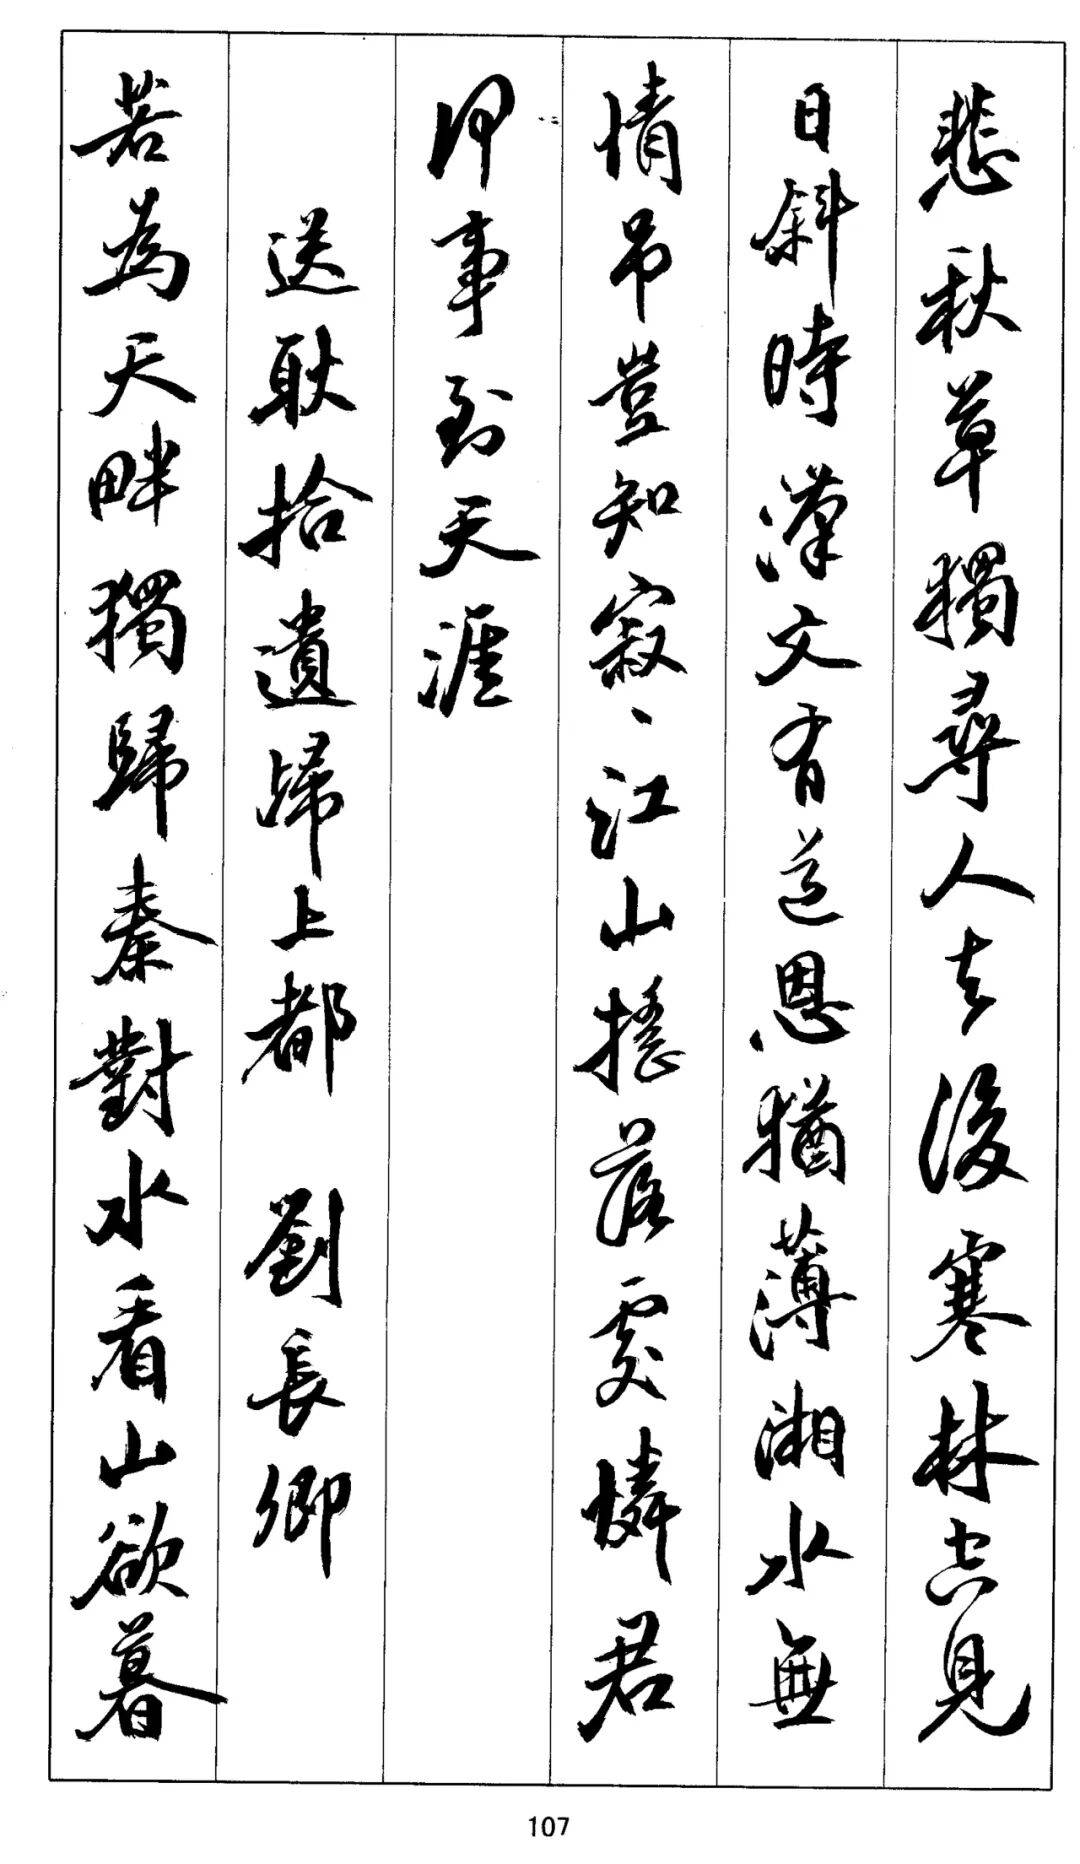 悲秋草獨尋人去後寒林空見
日斜時漢文有道恩猶薄湘水無
情吊豈知寂々江山搖落處憐君
何事到天涯
送耿拾遺歸上都 劉長卿
若為天畔獨歸秦對水看山欲暮
107